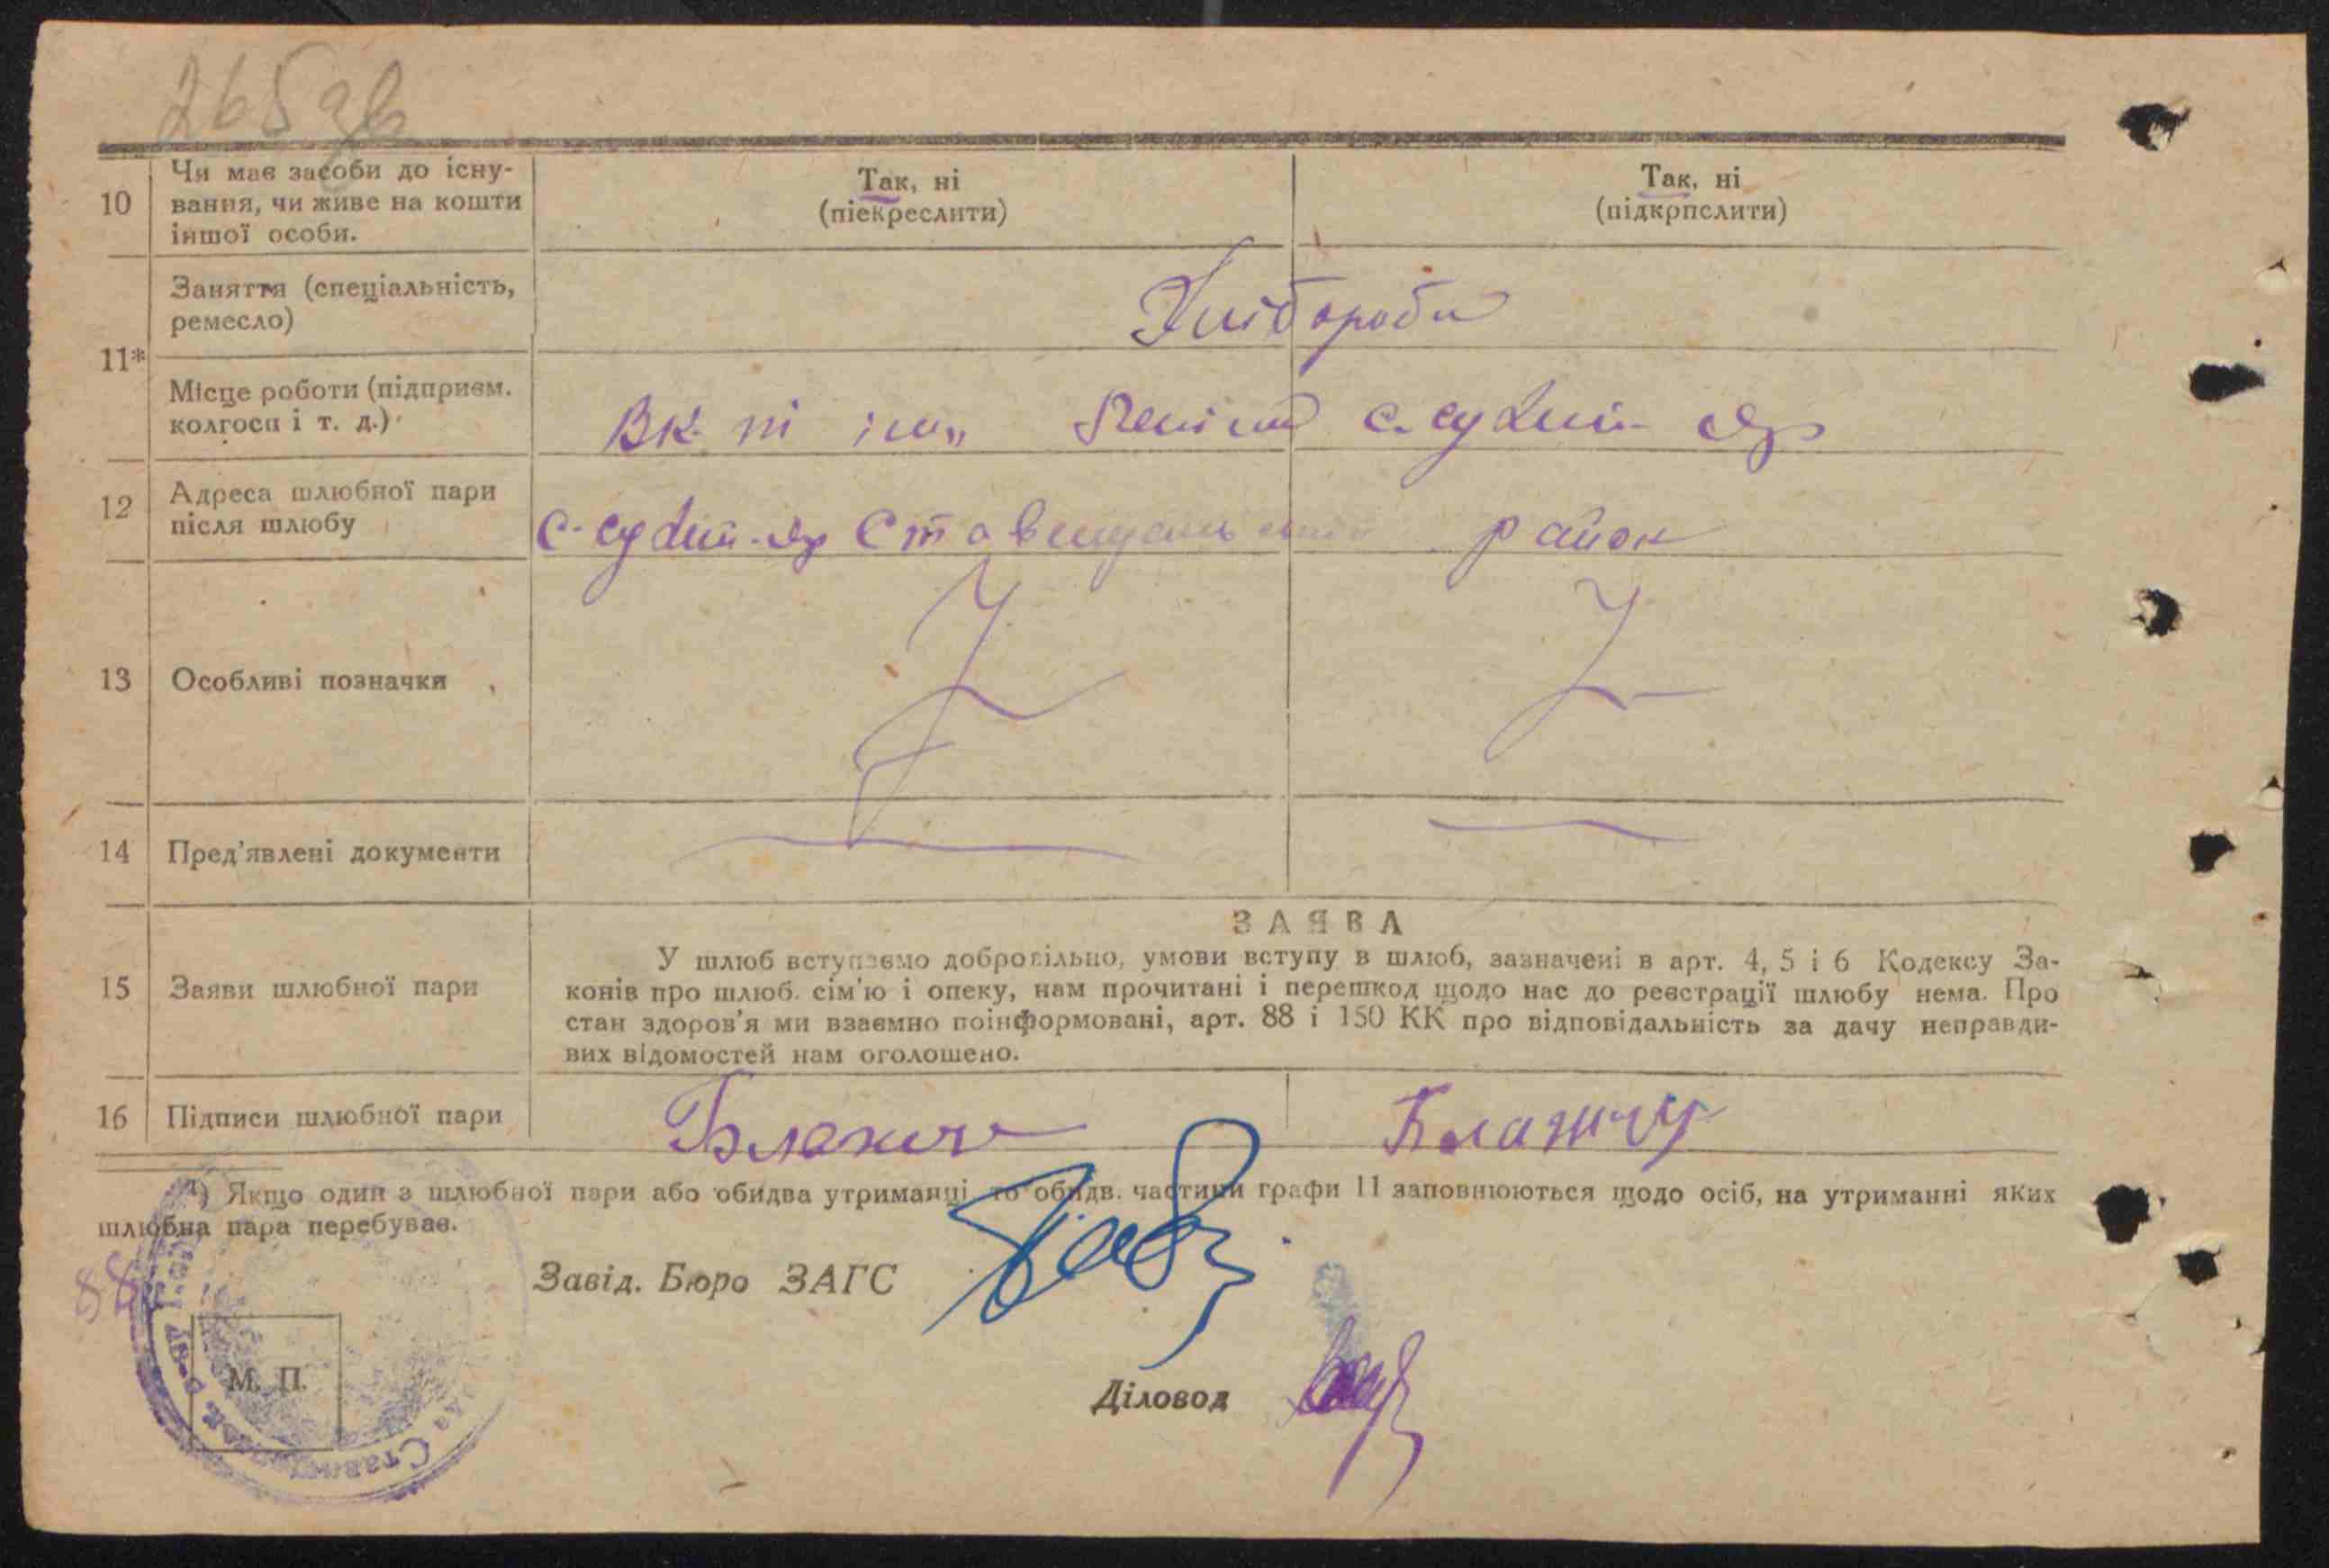 265 зв
10
Чи має засоби до існу-
вання, чи живе на кошти
іншої особи.
Так, ні
(піекреслити)
Так, ні
(підкрпслити)
11*
Заняття (спеціальність,
ремесло)
Хлібороби
Місце роботи (підприєм.
колгосп і т. д.)
с. Сухий Яр
12
Адреса шлюбної пари
після шлюбу
с. Сухий-Яр Ставищанський район
13
Особливі позначки
14
Пред’явлені документи
15
Заяви шлюбної пари
ЗАЯВА
У шлюб вступаємо добровільно, умови вступу в шлюб, зазначені в арт. 4, 5 і 6 Кодексу За-
конів про шлюб. сім’ю і опеку, нам прочитані і перешкод щодо нас до реєстрації шлюбу нема. Про
стан здоров’я ми взаємно поінформовані, арт. 88 і 150 КК про відповідальність за дачу неправди-
вих відомостей нам оголошено.
16
Підписи шлюбної пари
*) Якщо один з шлюбної пари або обидва утриманці то обидв. частини графи 11 заповнюються щодо осіб, на утриманні яких
шлюбна пара перебуває.
Завід. Бюро ЗАГС
М. П.
Діловод